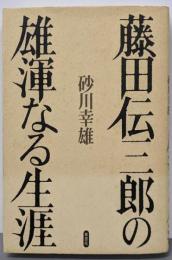 藤田伝三郎の
雄渾なる生涯
砂川幸雄